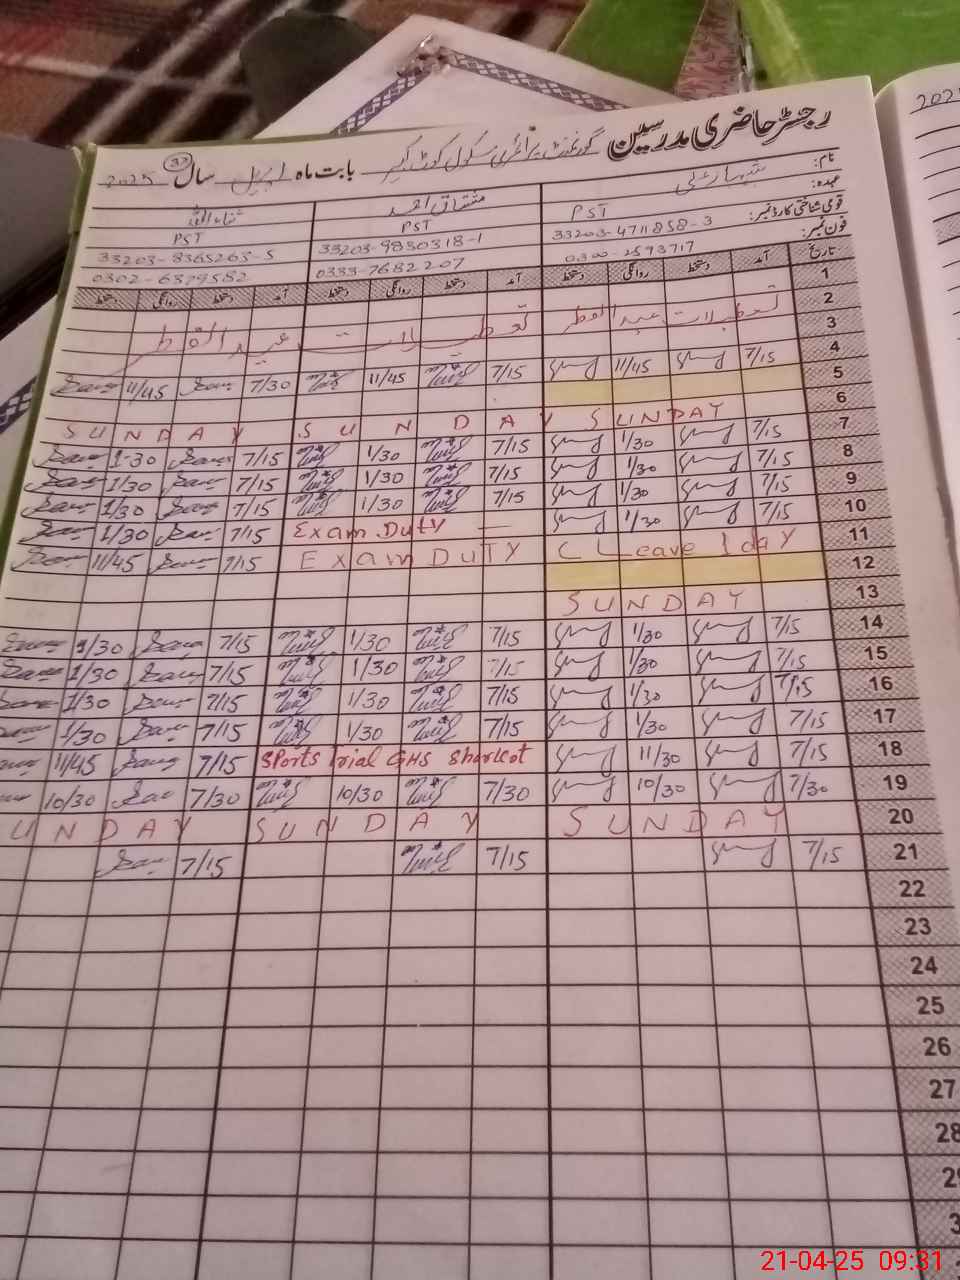 رجسٹر حاضری مدرسین گورنمنٹ پرائمری سکول کوٹ بابت ماہ اپریل سال 2025 32
نام: مشتاق احمد ثناء اللہ
عہدہ: PST PST PST
قومی شناختی کارڈ نمبر: 33203-4711858-3 33203-9830318-1 33203-8365263-5
فون نمبر: 0300-2593717 0333-7682207 0302-6329582
تاریخ آمد دستخط روانگی دستخط آمد دستخط روانگی دستخط آمد دستخط روانگی دستخط
1
2
3 تعطیلات عید الفطر تعطیلات عید الفطر
4
5 7/15 11/45 7/15 11/45 7/30 11/45
6 SUNDAY SUNDAY SUNDAY
7 7/15 1/30 7/15 1/30 7/15 1-30
8 7/15 1/30 7/15 1/30 7/15 1/30
9 7/15 1/30 7/15 1/30 7/15 1/30
10 7/15 1/30 Exam Duty 7/15 1/30
11 C Leave 1 day Exam DuTY 7/15 11/45
12
13 SUNDAY
14 7/15 1/30 7/15 1/30 7/15 1/30
15 7/15 1/30 7/15 1/30 7/15 1/30
16 7/15 1/30 7/15 1/30 7/15 1/30
17 7/15 1/30 7/15 1/30 7/15 1/30
18 7/15 11/30 Sports Trial GHS Shorkot 7/15 11/45
19 7/30 10/30 7/30 10/30 7/30 10/30
20 SUNDAY SUNDAY UNDAY
21 7/15 7/15 7/15
22
23
24
25
26
27
28
21-04-25 09:31